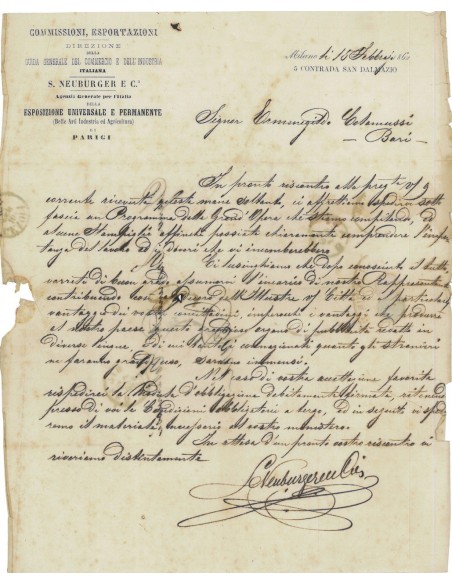 COMMISSIONI, ESPORTAZIONI
DIREZIONE
DELLA
GUIDA GENERALE DEL COMMERCIO E DELL'INDUSTRIA
ITALIANA
S. NEUBURGER E C.
Agenti Generale per l'Italia
DELLA
ESPOSIZIONE UNIVERSALE E PERMANENTE
(Belle Arti Industria ed Agricoltura)
DI
PARIGI
Milano li 15 Febbrai 186
5 CONTRADA SAN DALMAZIO
Signor Ermenegildo Colamussi
Bari
In pronto riscontro alla preg.ta v/ 9
corrente ricevuta questa mane soltanto, ci affrettiamo spedirvi sotto
fascia un Programma della Grand'Opera che stiamo compiendo, ed
alcune Stampiglie affinché possiate chiaramente comprendere l'impor
tanza del lavoro ed i doveri che vi incomberebbero
Vi lusinghiamo che dopo conosciuto il tutto,
vorrete di buon grado assumervi l'incarico di nostro Rappresentante
contribuendo così decoro Illustre v/ Città, ed particolari
vantaggi dei vostri concittadini, imperocché i vantaggi che
al nostro paese questo organo di pubblicità datto in
diverse lingue, di mi connazionali quanto gli stranieri
ne faranno uso, saranno immensi.
Nel caso di vostra accettazione favorite
rispedirci la Scheda d'obbligazione debitamente firmata, ritenendo
presso di voi le Condizioni obbligatorie a tergo, ed in seguito vi spedi
remo il materiale necessario al vostro ministero.
In attesa d'un pronto vostro riscontro vi
riveriamo distintamente
S. Neuburger e C.